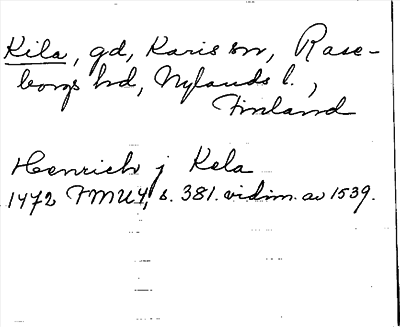 Kila, gd, Karis sn, Rase-
borgs hd, Nylands l.,
Finland
Henrich j Kela
1472 FMU4, s. 381. vidim. av 1539.